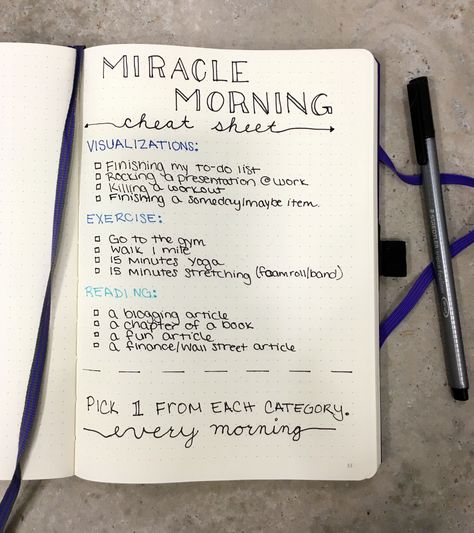 MIRACLE
MORNING
cheat sheet
VISUALIZATIONS:
Finishing my to-do list
Rocking a presentation @ work
Killing a workout
Finishing a someday/maybe item.
EXERCISE:
Go to the gym
Walk 1 mile
15 minutes yoga
15 minutes stretching (foamroll/band)
READING:
a blogging article
a chapter of a book
a fun article
a finance/Wall Street article
PICK 1 FROM EACH CATEGORY.
every morning